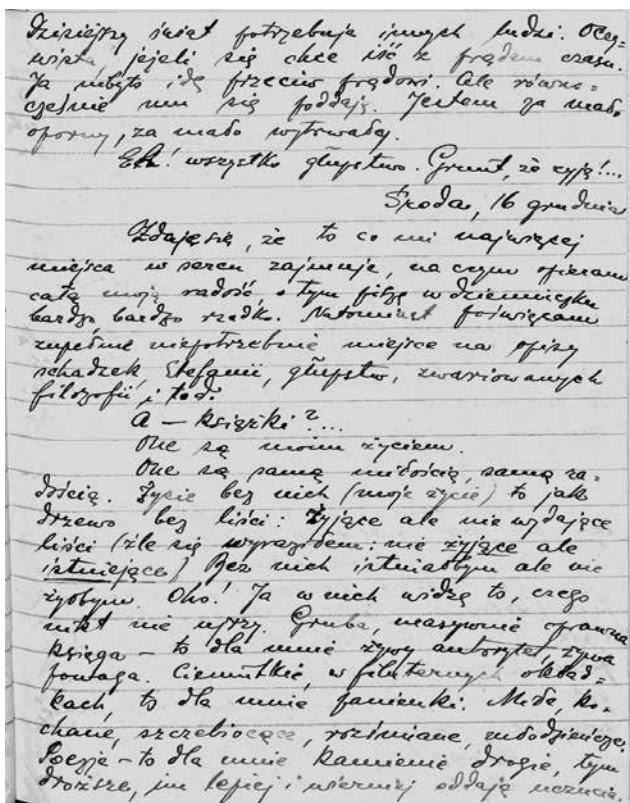 Dzisiejszy świat potrzebuje innych ludzi. Oczy=
wista, jeżeli się chce iść z prądem czasu.
Ja niby to idę przeciw prądowi. Ale równo=
cześnie mu się poddaję. Jestem za mało
oporny, za mało wytrwały.
Ech! wszystko głupstwo. Grunt, że żyję!...
Środa, 16 grudnia
Zdaje się, że to co mi najwięcej
miejsca w sercu zajmuje, na czym opieram
całą moją radość, o tym piszę w dzienniczku
bardzo bardzo rzadko. Natomiast poświęcam
zupełnie niepotrzebnie miejsce na opisy
schadzek, Stefanii, głupstw, zwariowanych
filozofii, i t.d.
A — książki?...
One są moim życiem.
One są samą miłością, samą ra=
dością. Życie bez nich (moje życie) to jak
drzewo bez liści: żyjące ale nie wydające
liści (źle się wyraziłem: nie żyjące ale
istniejące) Bez nich istniałbym ale nie
żyłbym. Oho! Ja w nich widzę to, czego
nikt nie ujrzy. Gruba, masywnie oprawna
księga — to dla mnie żywy autorytet, żywa
powaga. Cieniutkie, w filuternych okład=
kach, to dla mnie panienki. Miłe, ko=
chane, szczebiocące, roześmiane, młodzieńcze.
Poezje — to dla mnie kamienie drogie, tym
droższe, im lepiej i wierniej oddają uczucia.